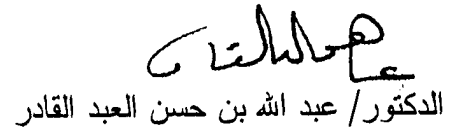 الدكتور/ عبد الله بن حسن العبد القادر